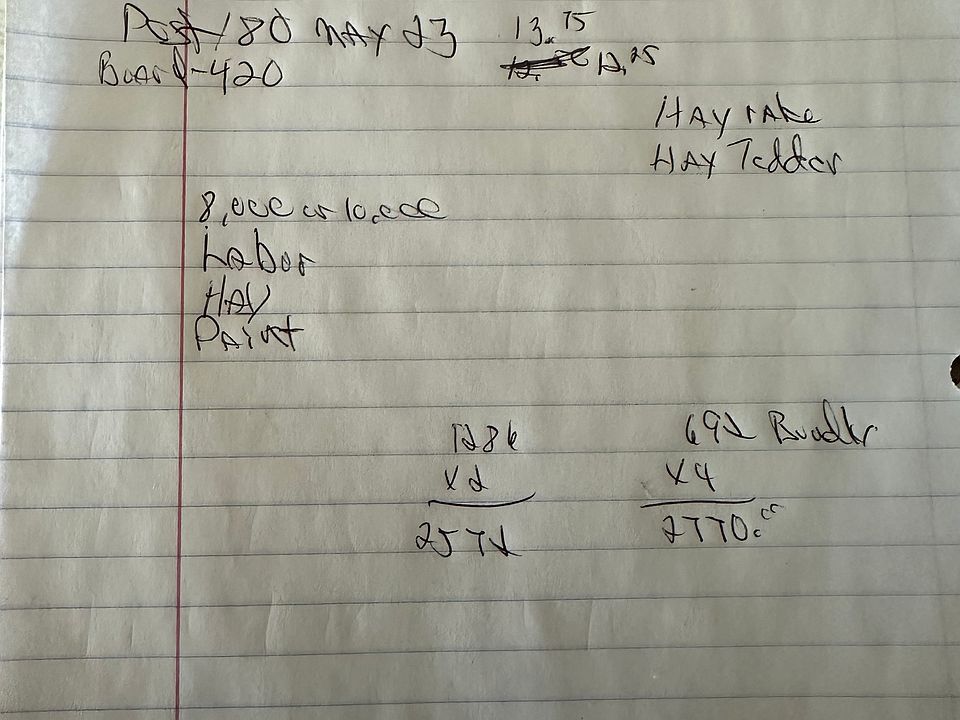 Post-180 MAY 23 13.75
Board-420 12.25
HAY rake
HAY Tedder
8,000 or 10,000
Labor
HAY
Paint
1286
x2
2572
692 Bundle
x4
2770.00